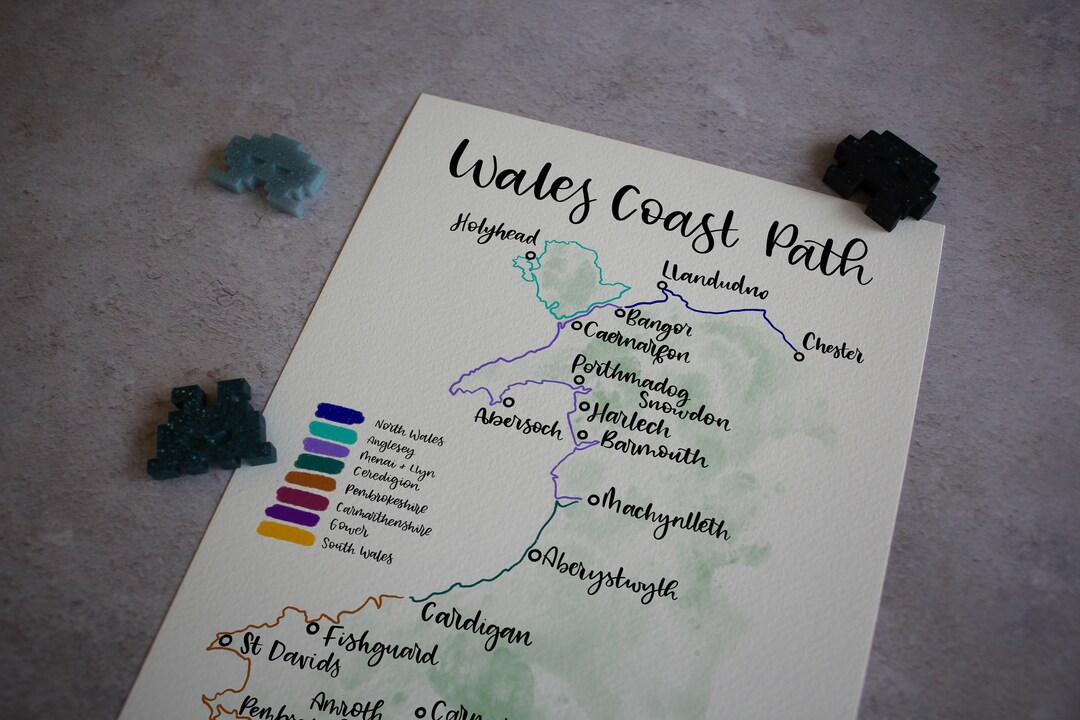 Wales Coast Path
Holyhead
Llandudno
Bangor
Chester
Caernarfon
Porthmadog
Snowdon
Abersoch
Harlech
Barmouth
North Wales
Anglesey
Menai + Llyn
Ceredigion
Pembrokeshire
Carmarthenshire
Gower
South Wales
Machynlleth
Aberystwyth
Cardigan
Fishguard
St Davids
Amroth